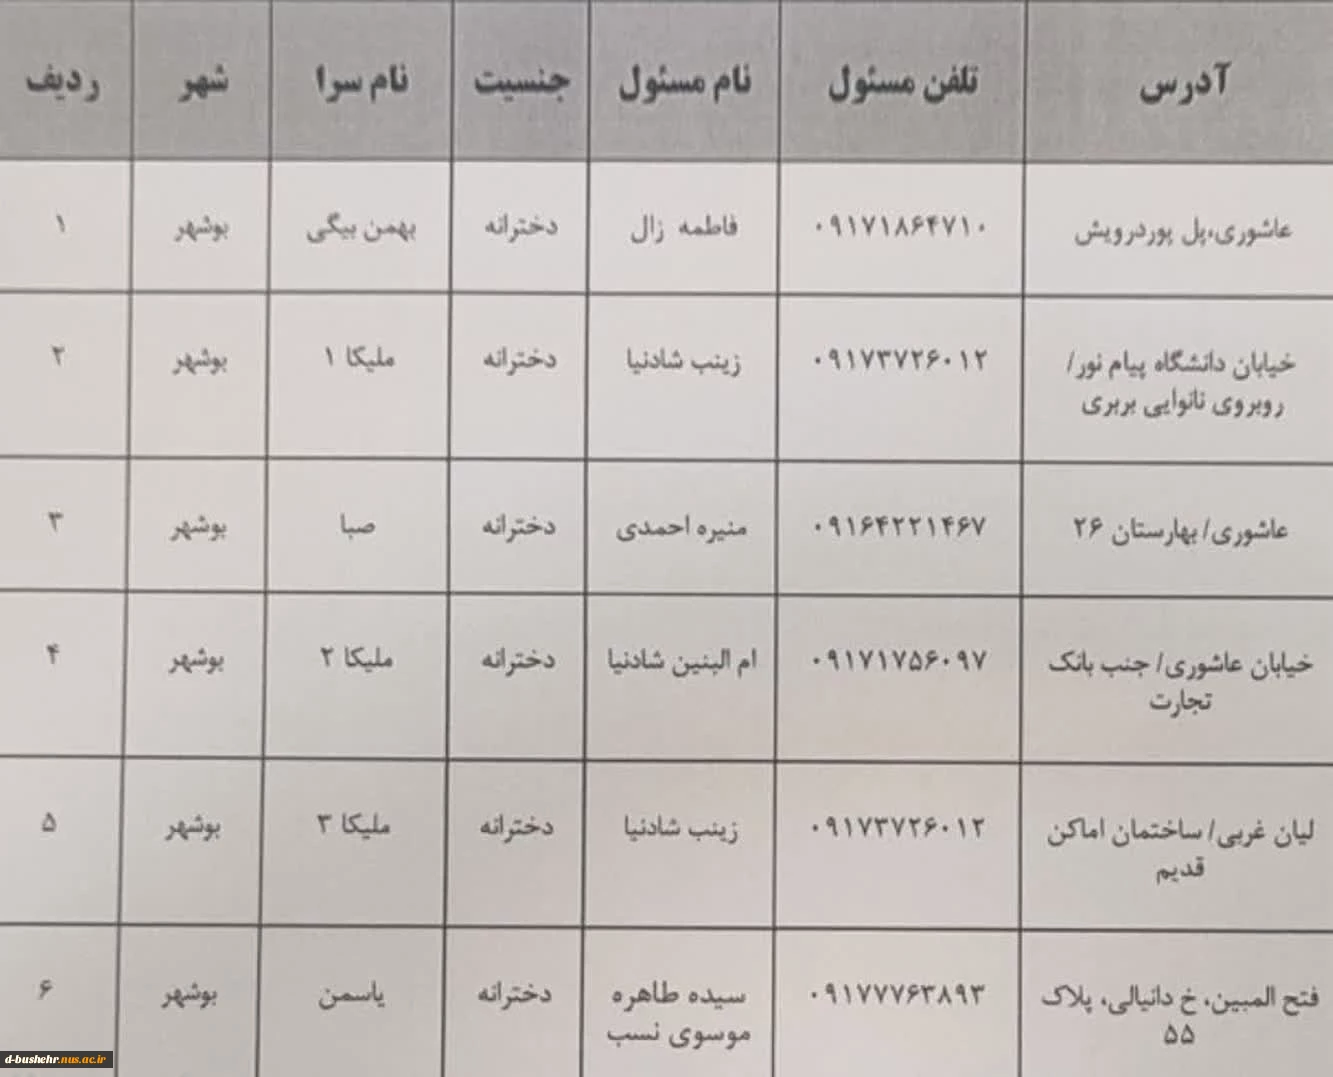 ردیف شهر نام سرا جنسیت نام مسئول تلفن مسئول آدرس
۱ بوشهر بهمن بیگی دخترانه فاطمه زال ۰۹۱۷۱۸۶۴۷۱۰ عاشوری،پل پوردرویش
۲ بوشهر ملیکا ۱ دخترانه زینب شادنیا ۰۹۱۷۳۷۲۶۰۱۲ خیابان دانشگاه پیام نور/
روبروی نانوایی بربری
۳ بوشهر صبا دخترانه منیره احمدی ۰۹۱۶۴۲۲۱۴۶۷ عاشوری/ بهارستان ۲۶
۴ بوشهر ملیکا ۲ دخترانه ام البنین شادنیا ۰۹۱۷۱۷۵۶۰۹۷ خیابان عاشوری/ جنب بانک
تجارت
۵ بوشهر ملیکا ۳ دخترانه زینب شادنیا ۰۹۱۷۳۷۲۶۰۱۲ لیان غربی/ ساختمان اماکن
قدیم
۶ بوشهر یاسمن دخترانه سیده طاهره ۰۹۱۷۷۷۶۳۸۹۳ فتح المبین، خ دانیالی، پلاک
موسوی نسب ۵۵
d-bushehr.nus.ac.ir